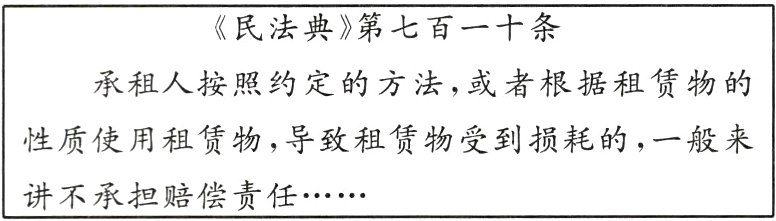 《民法典》第七百一十条
承租人按照约定的方法,或者根据租赁物的
性质使用租赁物,导致租赁物受到损耗的,一般来
讲不承担赔偿责任……